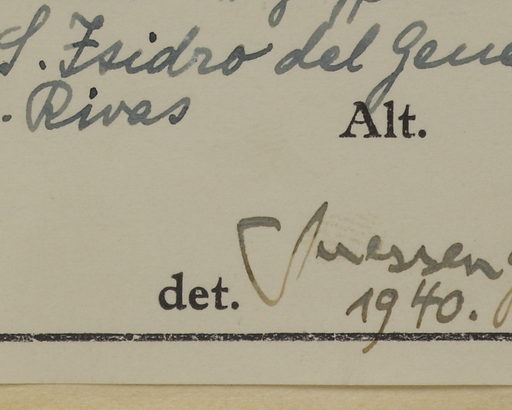 S. Isidro del Gene
. Rivas Alt.
det. Suessen
1940.